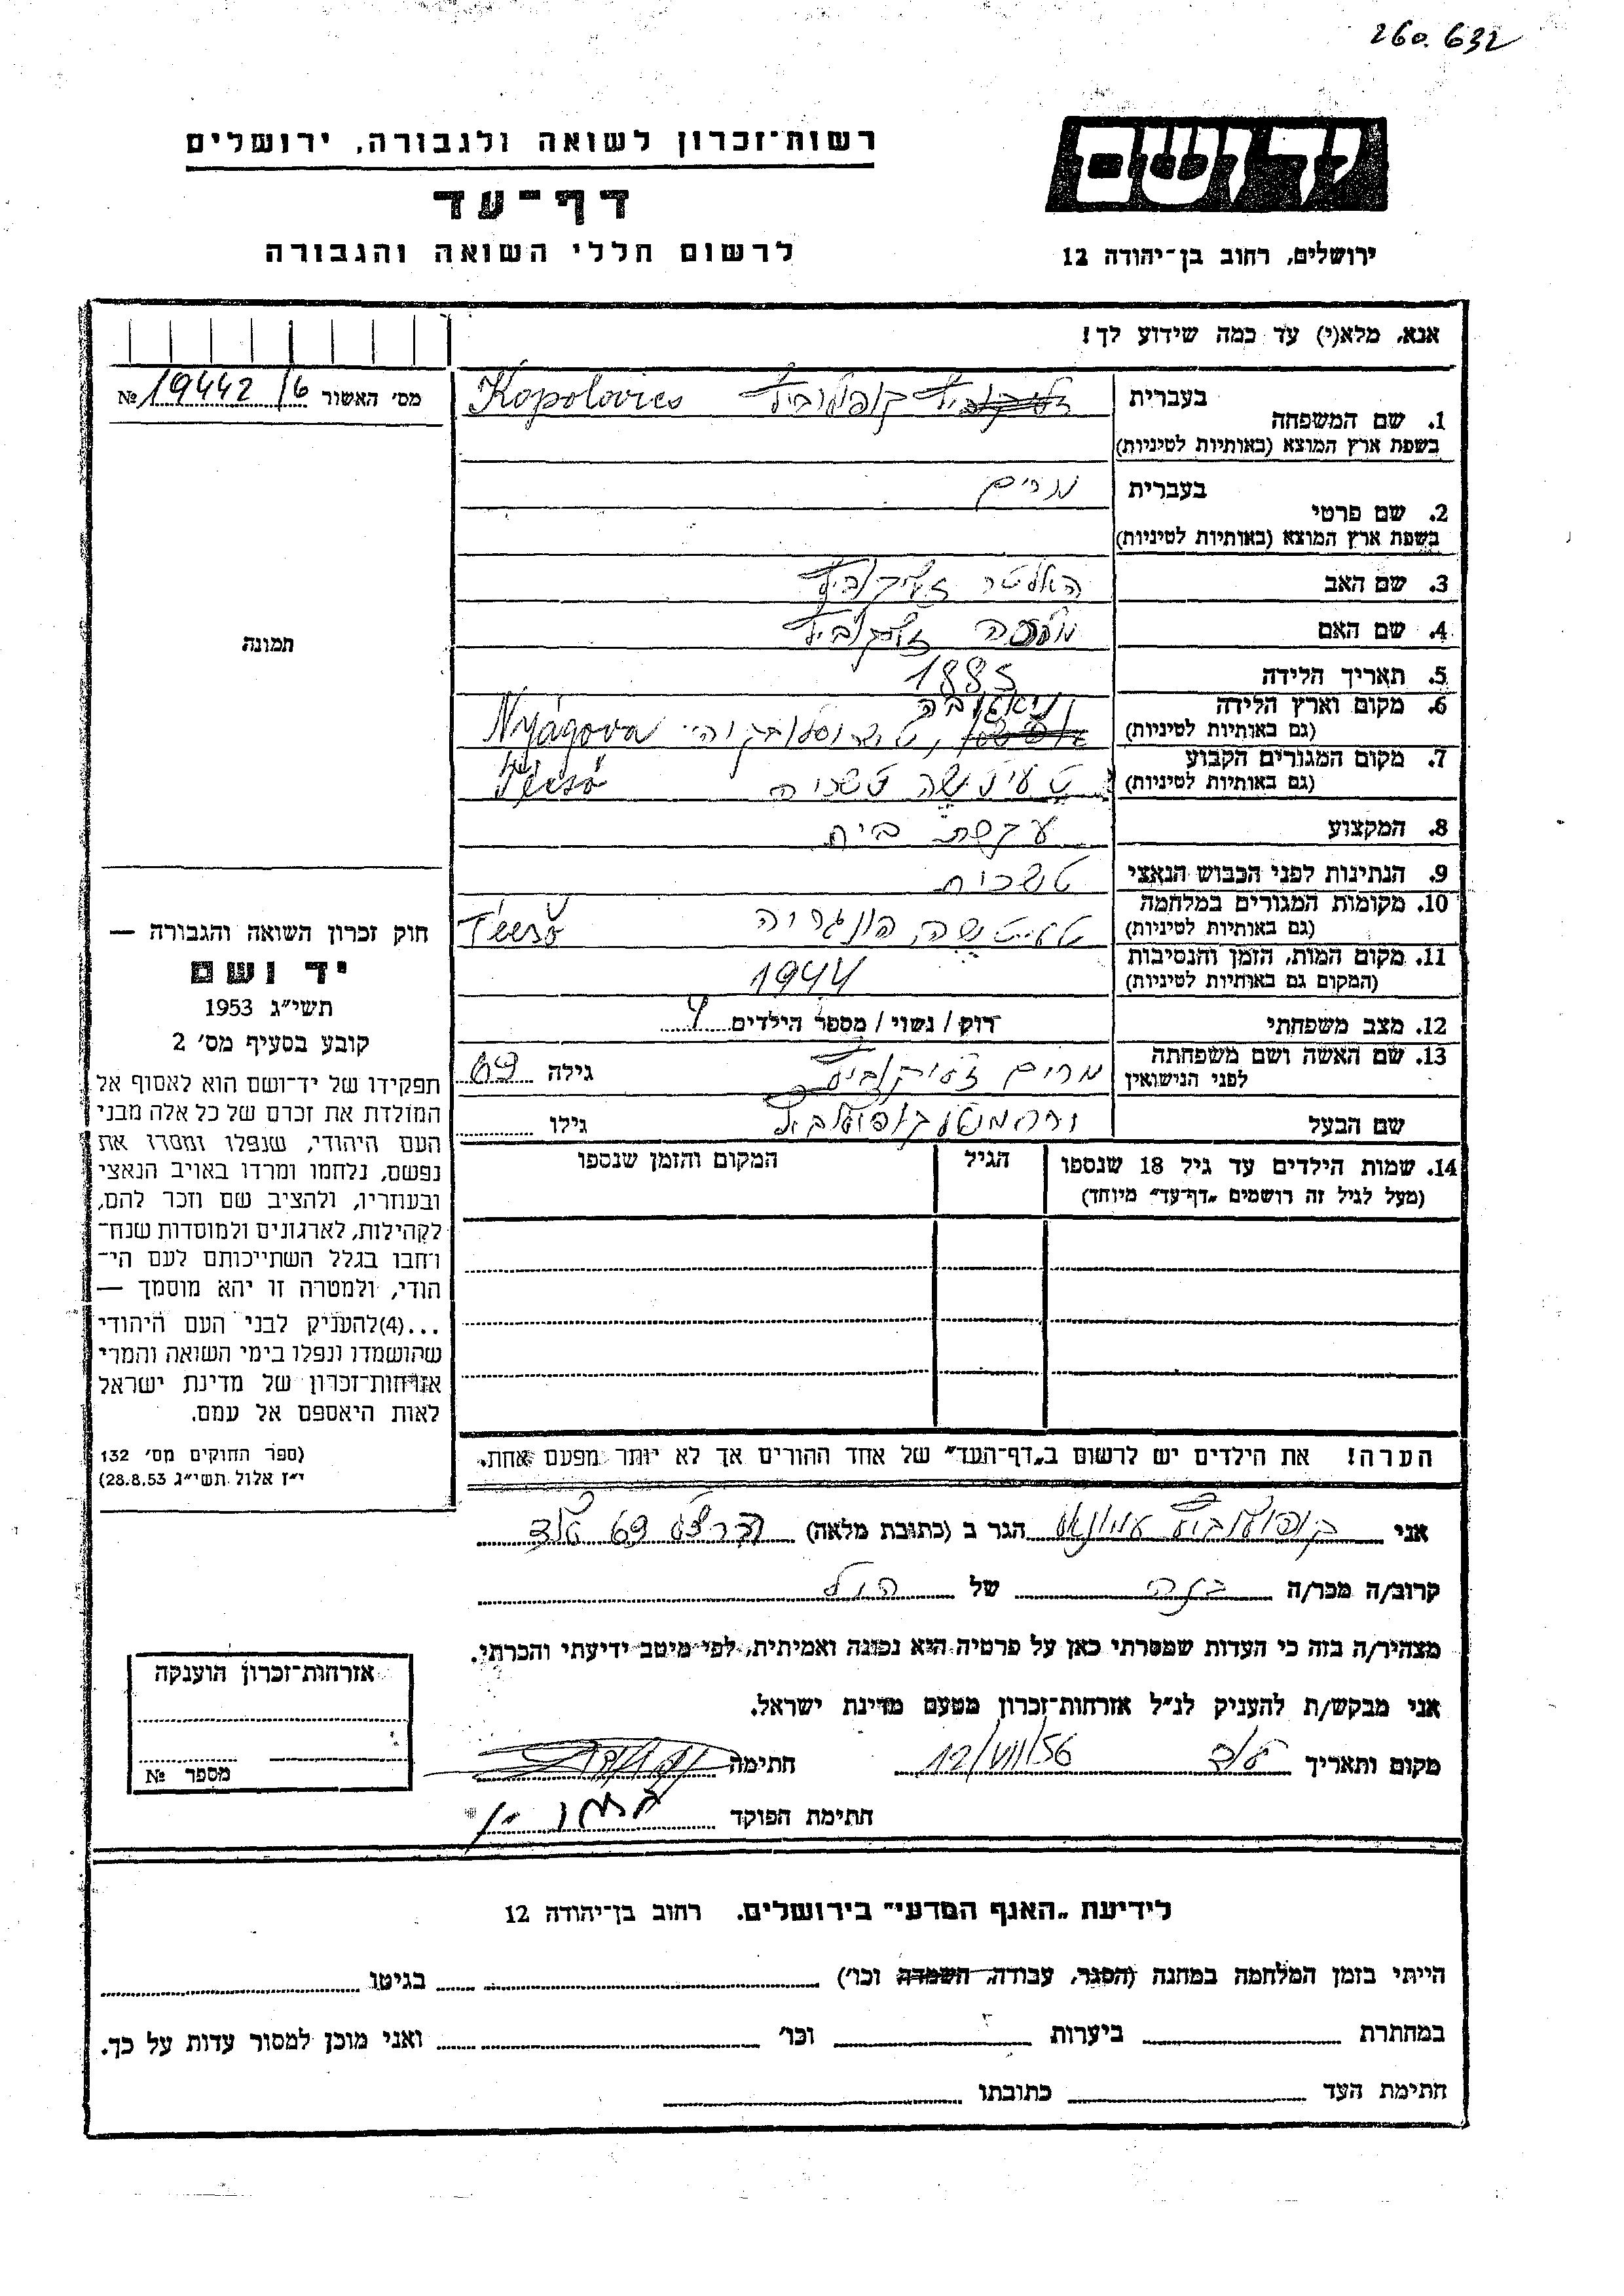 260.632
רשות־זכרון לשואה ולגבורה, ירושלים
דף־עד
לרשום חללי השואה והגבורה
ידושם
ירושלים, רחוב בן־יהודה 12
אנא, מלא(י) עד כמה שידוע לך!
מס׳ האשור 19442/6 №
1. שם המשפחה בעברית קופולוביץ Kopolovics
בשפת ארץ המוצא (באותיות לטיניות)
2. שם פרטי בעברית מרים
בשפת ארץ המוצא (באותיות לטיניות)
3. שם האב
4. שם האם
5. תאריך הלידה 1885
6. מקום וארץ הלידה ניאגובה
(גם באותיות לטיניות) Nyágova
7. מקום המגורים הקבוע
(גם באותיות לטיניות) Técső
8. המקצוע עקרת בית
9. הנתינות לפני הכבוש הנאצי
10. מקומות המגורים במלחמה הונגריה
(גם באותיות לטיניות) Técső
11. מקום המות, הזמן והנסיבות
(המקום גם באותיות לטיניות) 1944
12. מצב משפחתי רוק / נשוי / מספר הילדים
13. שם האשה ושם משפחתה
לפני הנישואין מרים גילה
שם הבעל גילו
14. שמות הילדים עד גיל 18 שנספו הגיל המקום והזמן שנספו
(מעל לגיל זה רושמים „דף־עד״ מיוחד)
הערה! את הילדים יש לרשום ב„דף־העד״ של אחד ההורים אך לא יותר מפעם אחת.
תמונה
חוק זכרון השואה והגבורה —
יד ושם
תשי״ג 1953
קובע בסעיף מס׳ 2
תפקידו של יד־ושם הוא לאסוף אל
המולדת את זכרם של כל אלה מבני
העם היהודי, שנפלו ומסרו את
נפשם, נלחמו ומרדו באויב הנאצי
ובעוזריו, ולהציב שם וזכר להם,
לקהילות, לארגונים ולמוסדות שנח־
רחבו בגלל השתייכותם לעם הי־
הודי, ולמטרה זו יהא מוסמך —
...(4)להעניק לבני העם היהודי
שהושמדו ונפלו בימי השואה והמרי
אזרחות־זכרון של מדינת ישראל
לאות היאספם אל עמם.
(ספר החוקים מס׳ 132
י״ז אלול תשי״ג 28.8.53)
אני הגר ב (כתובת מלאה)
קרוב/ה מכר/ה של
מצהיר/ה בזה כי העדות שמסרתי כאן על פרטיה היא נכונה ואמיתית, לפי מיטב ידיעתי והכרתי.
אני מבקש/ת להעניק לנ״ל אזרחות־זכרון מטעם מדינת ישראל.
מקום ותאריך 12/VII/56 חתימה
חתימת הפוקד
אזרחות־זכרון הוענקה
מספר №
לידיעת „האגף המדעי״ בירושלים. רחוב בן־יהודה 12
הייתי בזמן המלחמה במחנה (הסגר, עבודה, השמדה וכו׳) בגיטו
במחתרת ביערות וכו׳ ואני מוכן למסור עדות על כך.
חתימת העד כתובתו